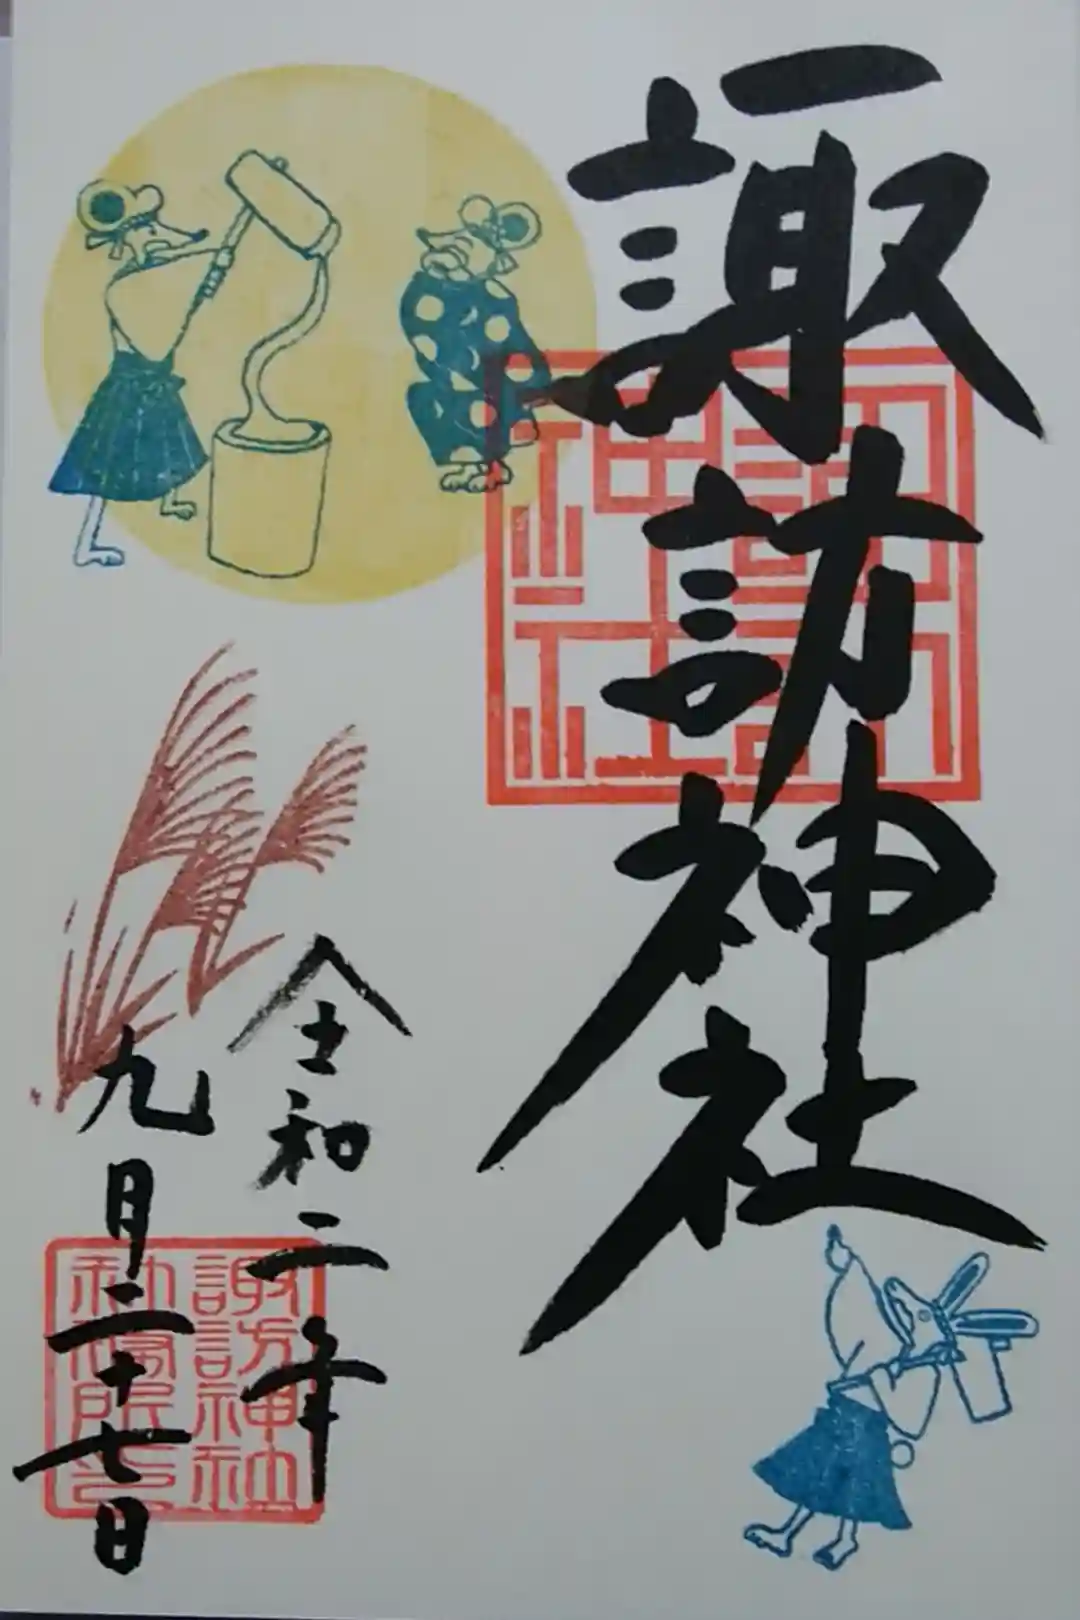 諏訪神社
諏訪
神社
令和二年
九月二十七日
諏訪神社
社務所印